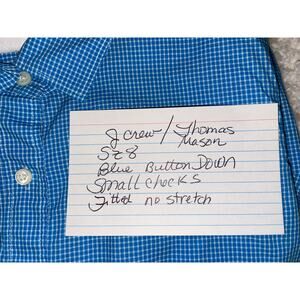 J crew / Thomas
Mason
Sz 8
Blue Button Down
Small checks
Fitted no stretch